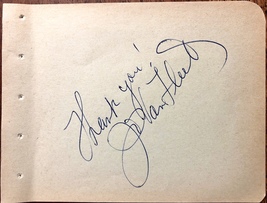 Thank you!
Jo Van Fleet